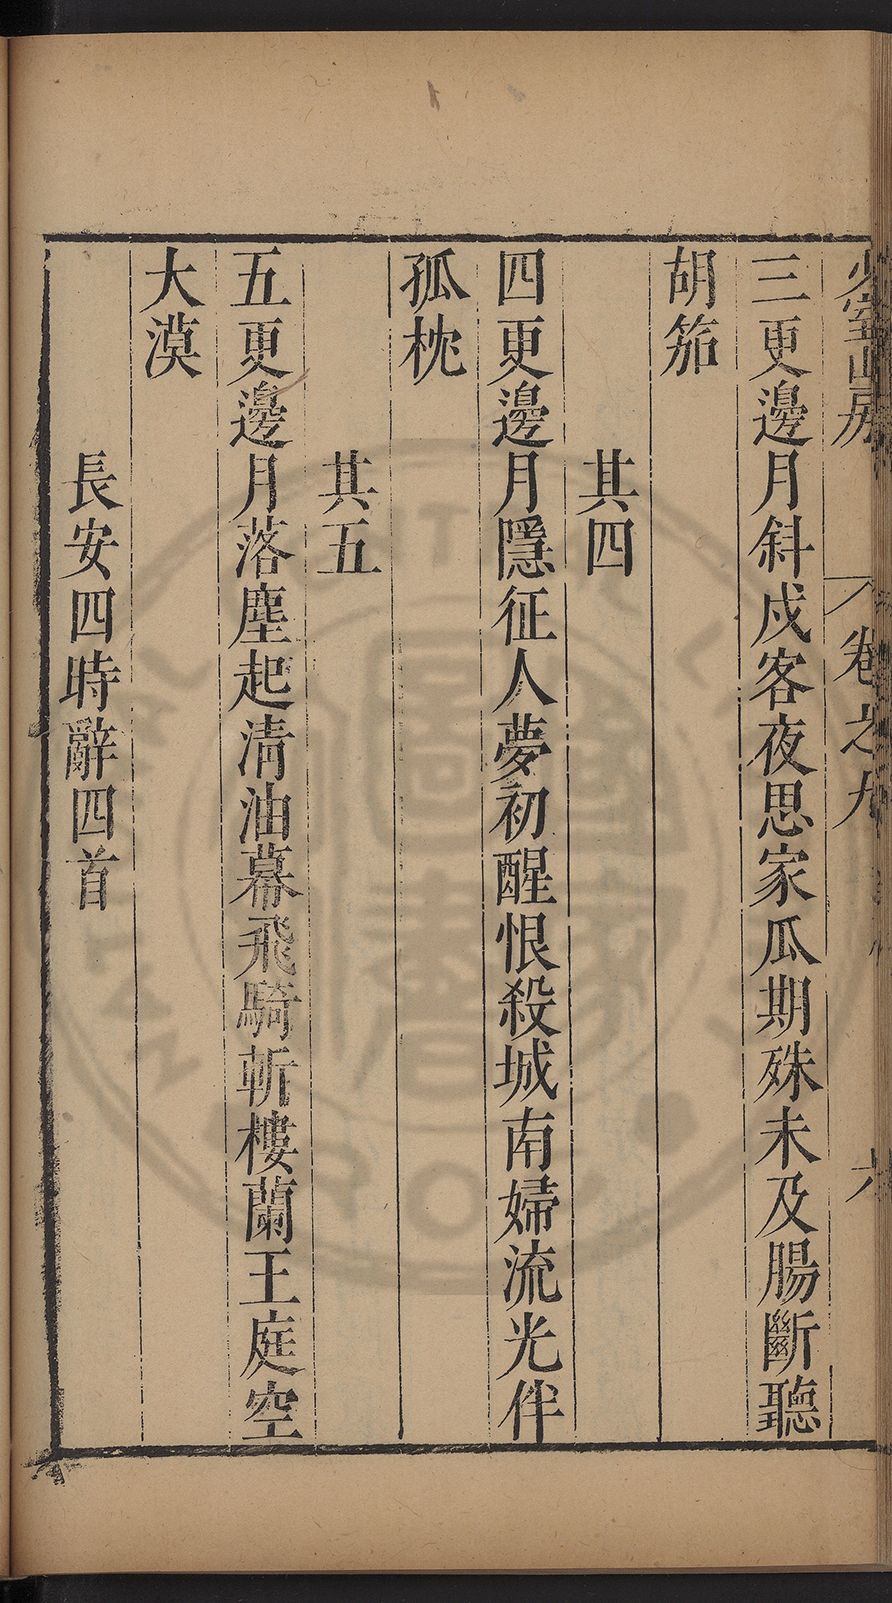 少室山房 卷之九 六
三更邊月斜戍客夜思家瓜期殊未及腸斷聽
胡笳
其四
四更邊月隱征人夢初醒恨殺城南婦流光伴
孤枕
其五
五更邊月落塵起清油幕飛騎斬樓蘭王庭空
大漠
長安四時辭四首